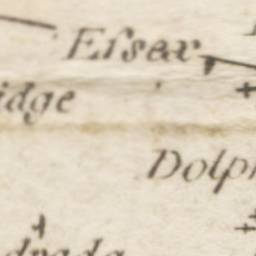 Eſsex
idge
Dolph